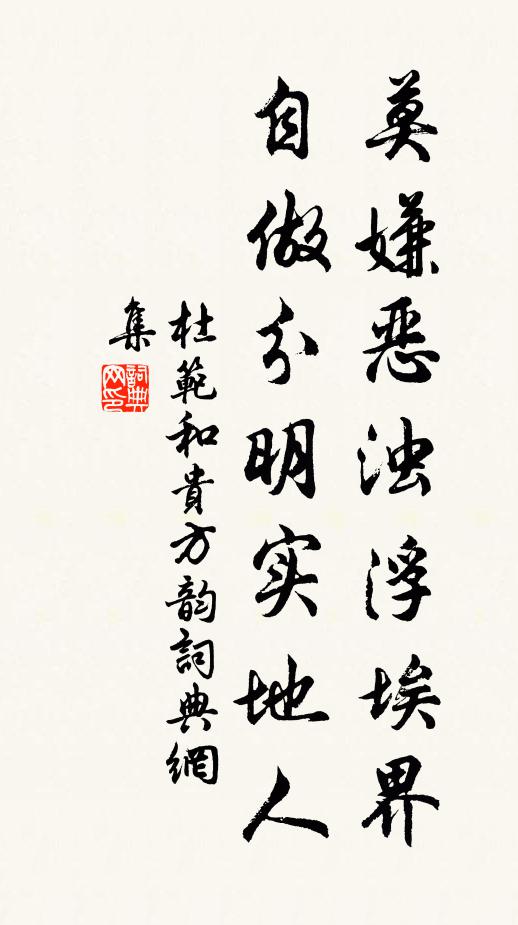 莫嫌恶浊浮埃界
自做分明实地人
杜範和貴方韵詞典網
集
詞典
网印